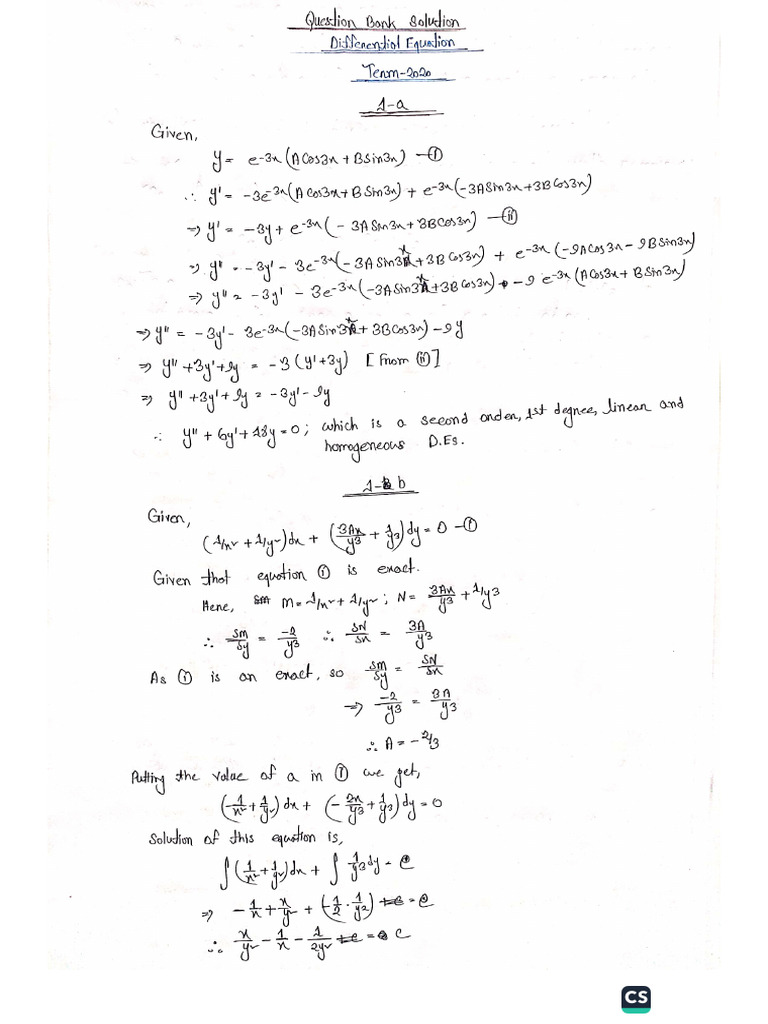 Question Bank Solution
Differential Equation
Term-2020
1-a
Given,
y = e^-3x (ACos3x + BSin3x) —(i)
∴ y' = -3e^-3x (ACos3x + BSin3x) + e^-3x (-3ASin3x + 3BCos3x)
⇒ y' = -3y + e^-3x (-3ASin3x + 3BCos3x) —(ii)
⇒ y'' = -3y' - 3e^-3x (-3ASin3x + 3BCos3x) + e^-3x (-9ACos3x - 9BSin3x)
⇒ y'' = -3y' - 3e^-3x (-3ASin3x + 3BCos3x) - 9 e^-3x (ACos3x + BSin3x)
⇒ y'' = -3y' - 3e^-3x (-3ASin3x + 3BCos3x) - 9y
⇒ y'' + 3y' + 9y = -3 (y' + 3y) [From (ii)]
⇒ y'' + 3y' + 9y = -3y' - 9y
∴ y'' + 6y' + 18y = 0 ; which is a second order, 1st degree, linear and
homogeneous D.Es.
1-b
Given,
(1/x² + 1/y²)dx + (3Ax/y³ + 1/y³)dy = 0 —(i)
Given that equation (i) is exact.
Here, M = 1/x² + 1/y² ; N = 3Ax/y³ + 1/y³
∴ δM/δy = -2/y³ ∴ δN/δx = 3A/y³
As (i) is an exact, so δM/δy = δN/δx
⇒ -2/y³ = 3A/y³
∴ A = -2/3
Putting the value of a in (i) we get,
(1/x² + 1/y²)dx + (-2x/y³ + 1/y³)dy = 0
Solution of this equation is,
∫(1/x² + 1/y²)dx + ∫ 1/y³ dy = c
⇒ -1/x + x/y² + (-1/2 · 1/y²) = c
∴ x/y² - 1/x - 1/2y² = c
CS